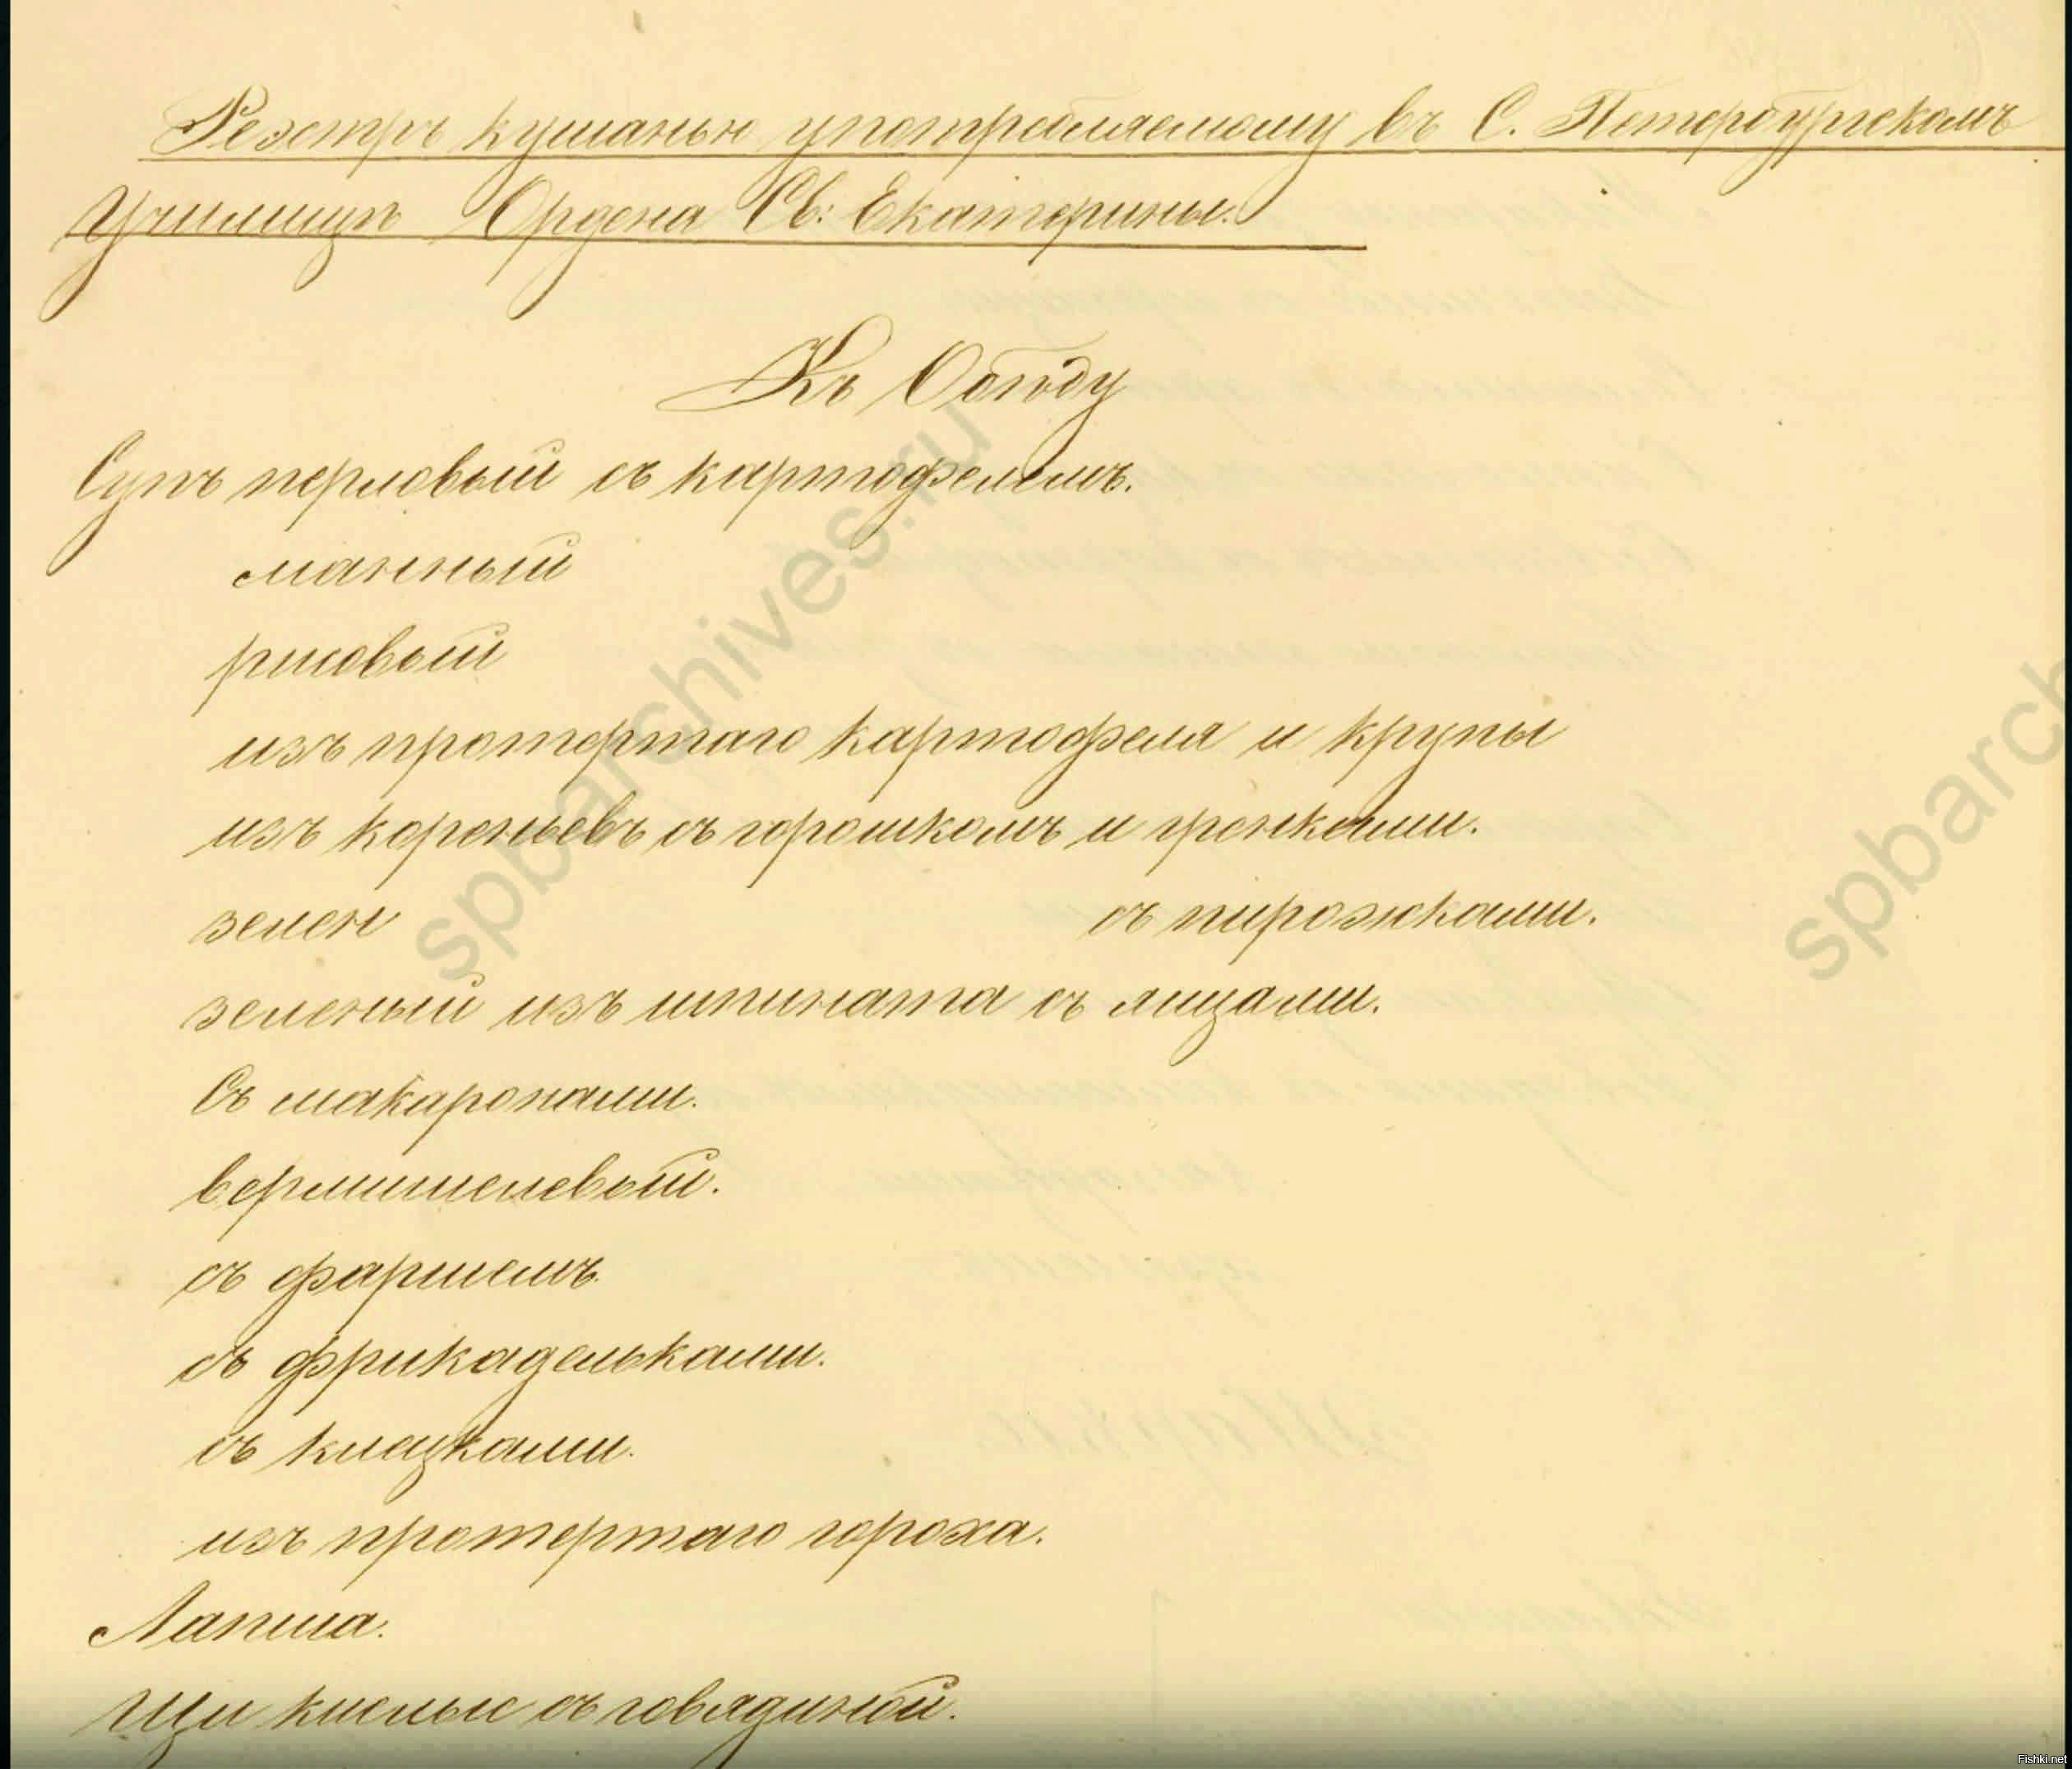 Реэстръ кушанью употребляемому въ С. Петербургскомъ
Училищѣ Ордена Св: Екатерины.
Къ Обѣду
Супъ перловый съ картофелемъ.
манный
рисовый
изъ протертаго картофеля и крупы
изъ кореньевъ съ горошкомъ и гренками.
зелен съ пирожками.
зеленый изъ шпината съ яицами.
Съ макаронами.
вермишелевый.
съ фаршемъ.
съ фрикадельками.
съ клецками.
изъ протертаго гороха.
Лапша.
Щи кислые съ говядиной.
spbarchives.ru
spbarch
Fishki.net